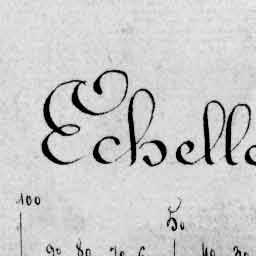 Echelle
100 50
90 80 70 6 40 30